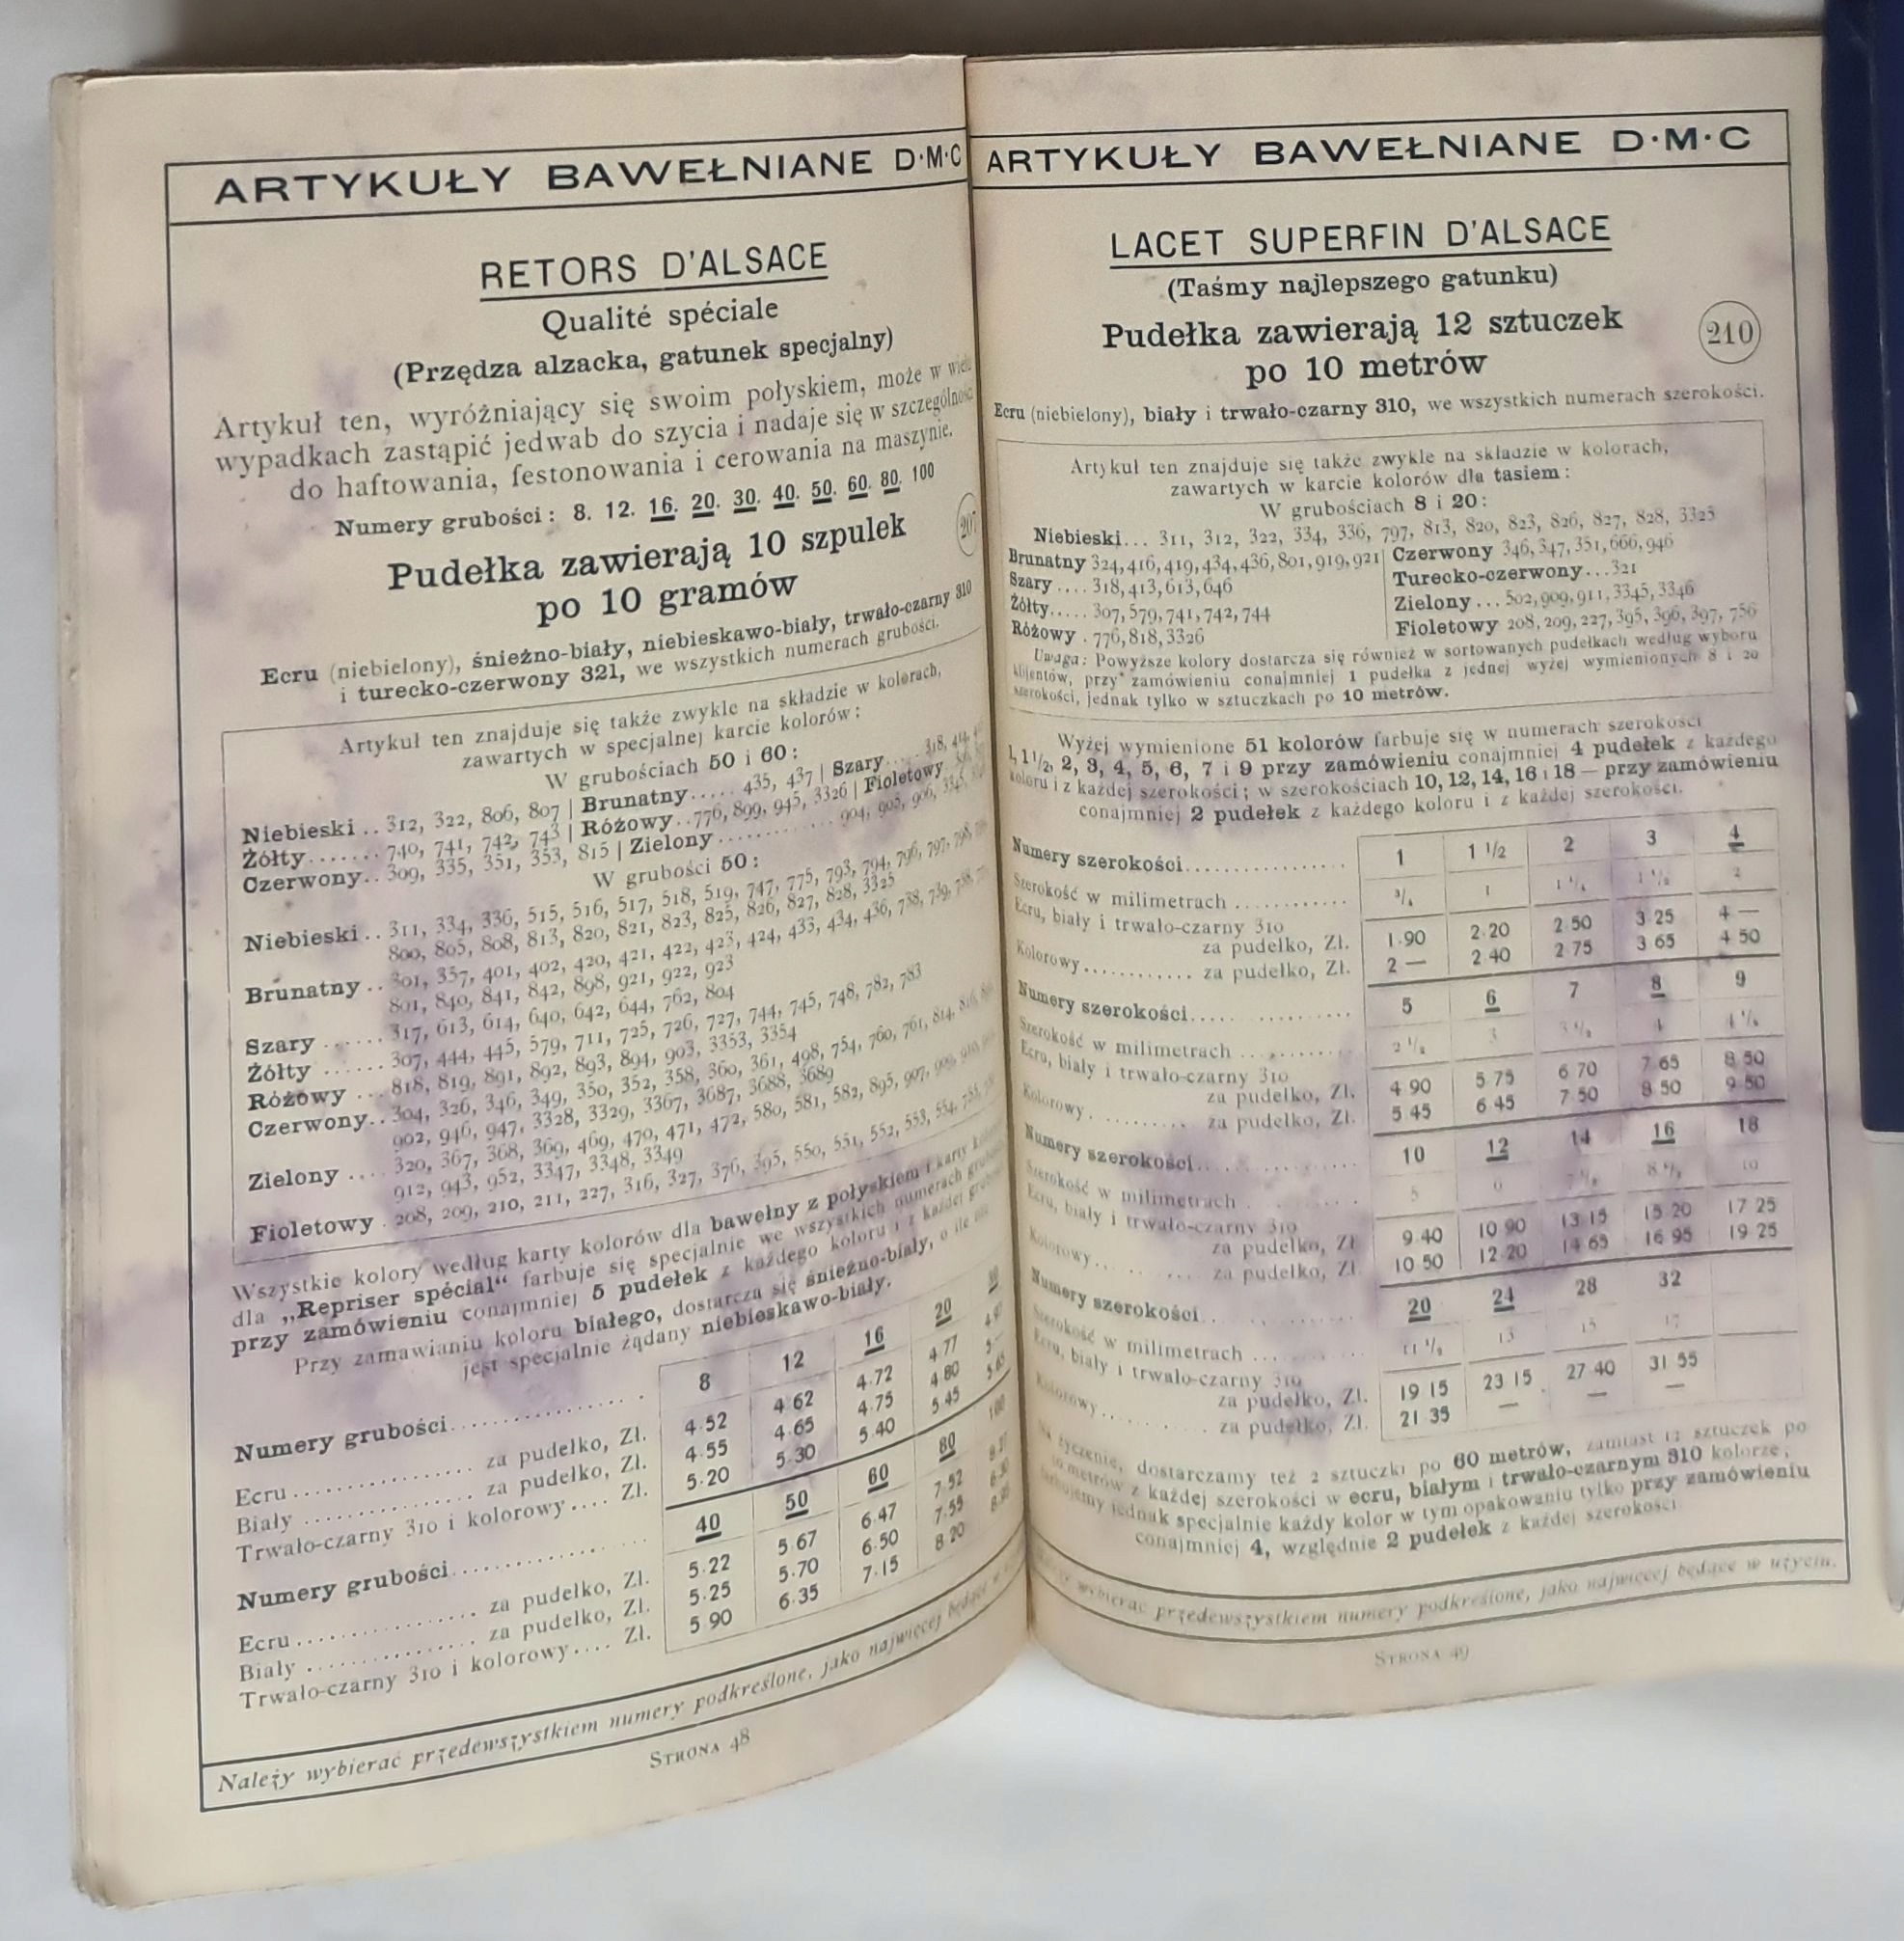 ARTYKUŁY BAWEŁNIANE D·M·C
RETORS D'ALSACE
Qualité spéciale
(Przędza alzacka, gatunek specjalny)
Artykuł ten, wyróżniający się swoim połyskiem, może w
wypadkach zastąpić jedwab do szycia i nadaje się w
do haftowania, festonowania i cerowania na maszynie.
Numery grubości: 8. 12. 16. 20. 30. 40. 50. 60. 80. 100
Pudełka zawierają 10 szpulek
po 10 gramów
Ecru (niebielony), śnieżno-biały, niebieskawo-biały, trwało-czarny 310
i turecko-czerwony 321, we wszystkich numerach grubości.
Artykuł ten znajduje się także zwykle na składzie w kolorach,
zawartych w specjalnej karcie kolorów:
W grubościach 50 i 60:
Niebieski .. 312, 322, 806, 807 | Brunatny..... 435, 437 | Szary... 318,
Żółty....... 740, 741, 742, 743 | Różowy..776, 899, 945, 3326 | Fioletowy
Czerwony.. 309, 335, 351, 353, 815 | Zielony ............ 904, 905, 906,
W grubości 50:
Niebieski .. 311, 334, 336, 515, 516, 517, 518, 519, 747, 775, 793, 794, 796, 797, 798,
800, 805, 808, 813, 820, 821, 823, 825, 826, 827, 828, 3325
Brunatny .. 301, 357, 401, 402, 420, 421, 422, 423, 424, 433, 434, 436, 738, 739,
801, 840, 841, 842, 898, 921, 922, 923
Szary ...... 317, 613, 614, 640, 642, 644, 762, 804
Żółty ...... 307, 444, 445, 579, 711, 725, 726, 727, 744, 745, 748, 782, 783
Różowy ... 818, 819, 891, 892, 893, 894, 903, 3353, 3354
Czerwony.. 304, 326, 346, 349, 350, 352, 358, 360, 361, 498, 754, 760, 761, 814, 816,
902, 946, 947, 3328, 3329, 3367, 3687, 3688, 3689
Zielony .... 320, 367, 368, 369, 469, 470, 471, 472, 580, 581, 582, 895, 907, 909,
912, 943, 952, 3347, 3348, 3349
Fioletowy . 208, 209, 210, 211, 227, 316, 327, 376, 395, 550, 551, 552, 553, 554,
Wszystkie kolory według karty kolorów dla bawełny z połyskiem i karty
dla „Repriser spécial“ farbuje się specjalnie we wszystkich numerach
przy zamówieniu conajmniej 5 pudełek z każdego koloru i z każdej
Przy zamawianiu koloru białego, dostarcza się śnieżno-biały, o ile
jest specjalnie żądany niebieskawo-biały.
Numery grubości.................. 8 12 16 20
Ecru............... za pudełko, Zł. 4·52 4·62 4·72 4·77
Biały .............. za pudełko, Zł. 4·55 4·65 4·75 4·80
Trwało-czarny 310 i kolorowy.... Zł. 5·20 5·30 5·40 5·45
Numery grubości.................. 40 50 60 80 100
Ecru............... za pudełko, Zł. 5·22 5·67 6·47 7·52
Biały .............. za pudełko, Zł. 5·25 5·70 6·50 7·55
Trwało-czarny 310 i kolorowy.... Zł. 5 90 6·35 7·15 8 20
Należy wybierać przedewszystkiem numery podkreślone, jako najwięcej będące
STRONA 48
ARTYKUŁY BAWEŁNIANE D·M·C
LACET SUPERFIN D'ALSACE
(Taśmy najlepszego gatunku)
Pudełka zawierają 12 sztuczek
po 10 metrów
210
Ecru (niebielony), biały i trwało-czarny 310, we wszystkich numerach szerokości.
Artykuł ten znajduje się także zwykle na składzie w kolorach,
zawartych w karcie kolorów dla tasiem:
W grubościach 8 i 20:
Niebieski... 311, 312, 322, 334, 336, 797, 813, 820, 823, 826, 827, 828, 3325
Brunatny 324, 416, 419, 434, 436, 801, 919, 921 | Czerwony 346, 347, 351, 666, 946
Szary .... 318, 413, 613, 646 | Turecko-czerwony...321
Żółty..... 307, 579, 741, 742, 744 | Zielony ... 502, 909, 911, 3345, 3346
Różowy . 776, 818, 3326 | Fioletowy 208, 209, 227, 395, 396, 397, 756
Uwaga: Powyższe kolory dostarcza się również w sortowanych pudełkach według wyboru
klijentów, przy zamówieniu conajmniej 1 pudełka z jednej wyżej wymienionych 8 i 20
szerokości, jednak tylko w sztuczkach po 10 metrów.
Wyżej wymienione 51 kolorów farbuje się w numerach szerokości
1, 1 1/2, 2, 3, 4, 5, 6, 7 i 9 przy zamówieniu conajmniej 4 pudełek z każdego
koloru i z każdej szerokości; w szerokościach 10, 12, 14, 16 i 18 — przy zamówieniu
conajmniej 2 pudełek z każdego koloru i z każdej szerokości.
Numery szerokości................ 1 1 1/2 2 3 4
Szerokość w milimetrach ............ 3/4 1 1 1/4 1 1/2 2
Ecru, biały i trwało-czarny 310
za pudełko, Zł. 1·90 2·20 2 50 3 25 4 —
Kolorowy............ za pudełko, Zł. 2 — 2·40 2 75 3 65 4 50
Numery szerokości................ 5 6 7 8 9
Szerokość w milimetrach ............ 2 1/2 3 3 1/2 4 4 1/2
Ecru, biały i trwało-czarny 310
za pudełko, Zł. 4 90 5 75 6 70 7 65 8 50
Kolorowy............ za pudełko, Zł. 5 45 6 45 7 50 8 50 9 50
Numery szerokości................ 10 12 14 16 18
Szerokość w milimetrach ............ 5 6 10
Ecru, biały i trwało-czarny 310
za pudełko, Zł 9 40 10 90 13 15 15 20 17 25
Kolorowy............ za pudełko, Zł 10 50 12 20 14 65 16 95 19 25
Numery szerokości................ 20 24 28 32
Szerokość w milimetrach ............ 11 1/2 13 15 17
Ecru, biały i trwało-czarny 310
za pudełko, Zł. 19 15 23 15 27 40 31 55
Kolorowy............ za pudełko, Zł. 21 35 — — —
Na życzenie, dostarczamy też 2 sztuczki po 60 metrów, zamiast 12 sztuczek po
10 metrów z każdej szerokości w ecru, białym i trwało-czarnym 310 kolorze;
farbujemy jednak specjalnie każdy kolor w tym opakowaniu tylko przy zamówieniu
conajmniej 4, względnie 2 pudełek z każdej szerokości
wybierać przedewszystkiem numery podkreślone, jako najwięcej będące w użyciu.
STRONA 49